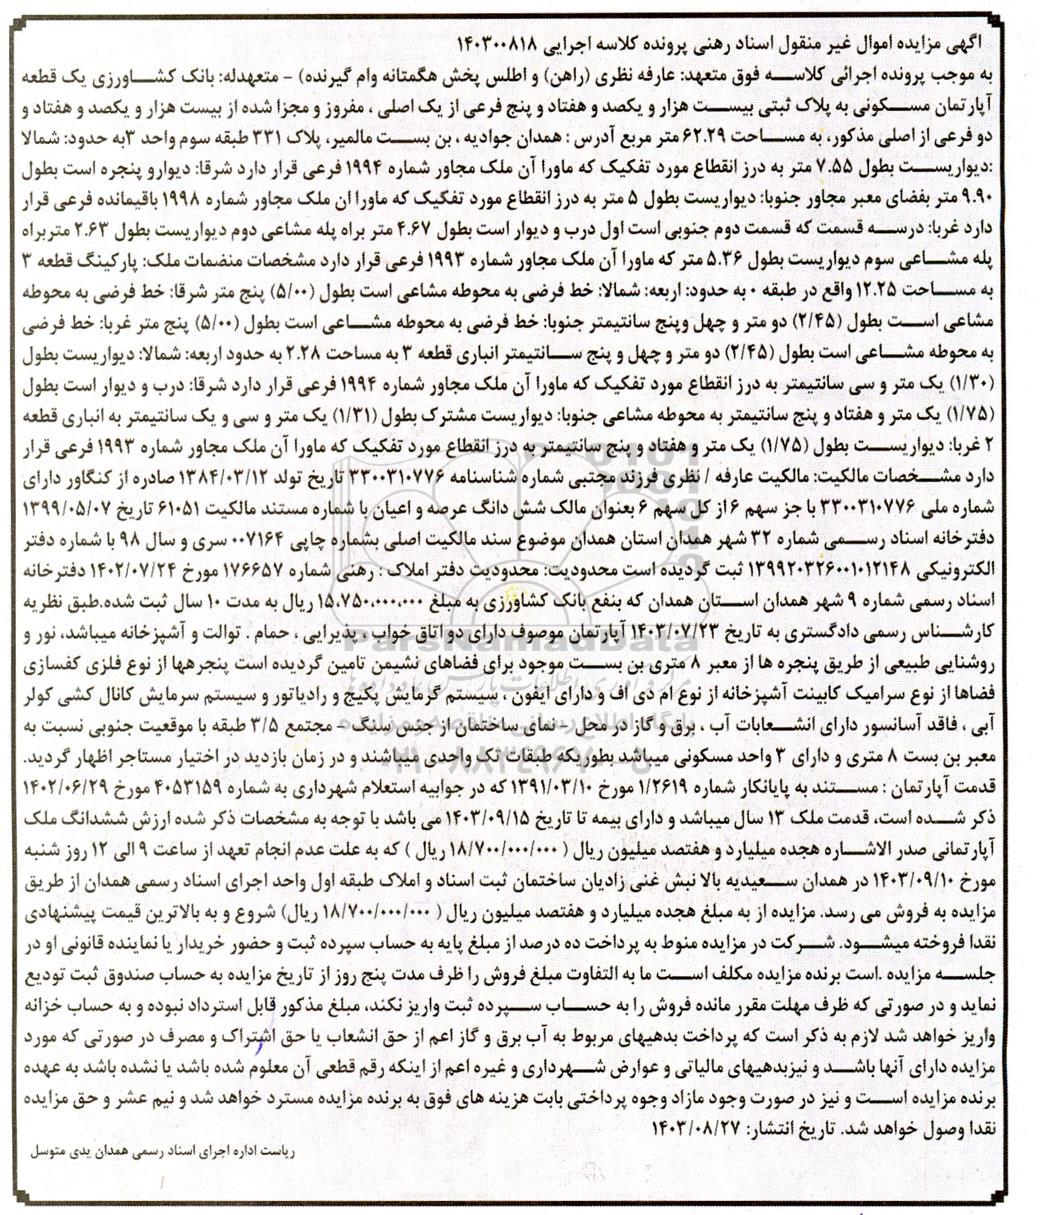 اگهی مزایده اموال غیر منقول اسناد رهنی پرونده کلاسه اجرایی ۱۴۰۳۰۰۸۱۸
به موجب پرونده اجرائی کلاسه فوق متعهد: عارفه نظری (راهن) و اطلس پخش هگمتانه وام گیرنده) – متعهدله: بانک کشاورزی یک قطعه
آپارتمان مسکونی به پلاک ثبتی بیست هزار و یکصد و هفتاد و پنج فرعی از یک اصلی ، مفروز و مجزا شده از بیست هزار و یکصد و هفتاد و
دو فرعی از اصلی مذکور، به مساحت ۶۲.۲۹ متر مربع آدرس : همدان جوادیه ، بن بست مالمیر، پلاک ۳۳۱ طبقه سوم واحد ۳به حدود: شمالا
:دیواریست بطول ۷.۵۵ متر به درز انقطاع مورد تفکیک که ماورا آن ملک مجاور شماره ۱۹۹۴ فرعی قرار دارد شرقا: دیوارو پنجره است بطول
۹.۹۰ متر بفضای معبر مجاور جنوبا: دیواریست بطول ۵ متر به درز انقطاع مورد تفگیک که ماورا ان ملک مجاور شماره ۱۹۹۸ باقیمانده فرعی قرار
دارد غربا: درسه قسمت که قسمت دوم جنوبی است اول درب و دیوار است بطول ۴.۶۷ متر براه پله مشاعی دوم دیواریست بطول ۲.۶۳ متربراه
پله مشاعی سوم دیواریست بطول ۵.۳۶ متر که ماورا آن ملک مجاور شماره ۱۹۹۳ فرعی قرار دارد مشخصات منضمات ملک: پارکینگ قطعه ۳
به مساحت ۱۲.۲۵ واقع در طبقه ۰ به حدود: اربعه: شمالا: خط فرضی به محوطه مشاعی است بطول (۵/۰۰) پنج متر شرقا: خط فرضی به محوطه
مشاعی است بطول (۲/۴۵) دو متر و چهل وپنج سانتیمتر جنوبا: خط فرضی به محوطه مشاعی است بطول (۵/۰۰) پنج متر غربا: خط فرضی
به محوطه مشاعی است بطول (۲/۴۵) دو متر و چهل و پنج سانتیمتر انباری قطعه ۳ به مساحت ۲.۲۸ به حدود اربعه: شمالا: دیواریست بطول
(۱/۳۰) یک متر و سی سانتیمتر به درز انقطاع مورد تفکیک که ماورا آن ملک مجاور شماره ۱۹۹۴ فرعی قرار دارد شرقا: درب و دیوار است بطول
(۱/۷۵) یک متر و هفتاد و پنج سانتیمتر به محوطه مشاعی جنوبا: دیواریست مشترک بطول (۱/۳۱) یک متر و سی و یک سانتیمتر به انباری قطعه
۲ غربا: دیواریست بطول (۱/۷۵) یک متر و هفتاد و پنج سانتیمتر به درز انقطاع مورد تفکیک که ماورا آن ملک مجاور شماره ۱۹۹۳ فرعی قرار
دارد مشخصات مالکیت: مالکیت عارفه / نظری فرزند مجتبی شماره شناسنامه ۳۳۰۰۳۱۰۷۷۶ تاریخ تولد ۱۳۸۴/۰۳/۱۲ صادره از کنگاور دارای
شماره ملی ۳۳۰۰۳۱۰۷۷۶ با جز سهم ۶ از کل سهم ۶ بعنوان مالک شش دانگ عرصه و اعیان با شماره مستند مالکیت ۶۱۰۵۱ تاریخ ۱۳۹۹/۰۵/۰۷
دفترخانه اسناد رسمی شماره ۳۲ شهر همدان استان همدان موضوع سند مالکیت اصلی بشماره چاپی ۰۰۷۱۶۴ سری و سال ۹۸ با شماره دفتر
الکترونیکی ۱۳۹۹۲۰۳۲۶۰۰۱۰۱۲۱۴۸ ثبت گردیده است محدودیت: محدودیت دفتر املاک : رهنی شماره ۱۷۶۶۵۷ مورخ ۱۴۰۲/۰۷/۲۴ دفترخانه
اسناد رسمی شماره ۹ شهر همدان استان همدان که بنفع بانک کشاورزی به مبلغ ۱۵،۷۵۰،۰۰۰،۰۰۰ ریال به مدت ۱۰ سال ثبت شده.طبق نظریه
کارشناس رسمی دادگستری به تاریخ ۱۴۰۳/۰۷/۲۳ آپارتمان موصوف دارای دو اتاق خواب ، پذیرایی ، حمام . توالت و آشپزخانه میباشد، نور و
روشنایی طبیعی از طریق پنجره ها از معبر ۸ متری بن بست موجود برای فضاهای نشیمن تامین گردیده است پنجرهها از نوع فلزی کفسازی
فضاها از نوع سرامیک کابینت آشپزخانه از نوع ام دی اف و دارای ایفون ، سیستم گرمایش پکیج و رادیاتور و سیستم سرمایش کانال کشی کولر
آبی ، فاقد آسانسور دارای انشعابات آب ، برق و گاز در محل – نمای ساختمان از جنس سنگ – مجتمع ۳/۵ طبقه با موقعیت جنوبی نسبت به
معبر بن بست ۸ متری و دارای ۳ واحد مسکونی میباشد بطوریکه طبقات تک واحدی میباشند و در زمان بازدید در اختیار مستاجر اظهار گردید.
قدمت آپارتمان : مستند به پایانکار شماره ۱/۲۶۱۹ مورخ ۱۳۹۱/۰۳/۱۰ که در جوابیه استعلام شهرداری به شماره ۴۰۵۳۱۵۹ مورخ ۱۴۰۲/۰۶/۲۹
ذکر شده است، قدمت ملک ۱۳ سال میباشد و دارای بیمه تا تاریخ ۱۴۰۳/۰۹/۱۵ می باشد با توجه به مشخصات ذکر شده ارزش ششدانگ ملک
آپارتمانی صدر الاشاره هجده میلیارد و هفتصد میلیون ریال ( ۱۸/۷۰۰/۰۰۰/۰۰۰ ریال ) که به علت عدم انجام تعهد از ساعت ۹ الی ۱۲ روز شنبه
مورخ ۱۴۰۳/۰۹/۱۰ در همدان سعیدیه بالا نبش غنی زادیان ساختمان ثبت اسناد و املاک طبقه اول واحد اجرای اسناد رسمی همدان از طریق
مزایده به فروش می رسد. مزایده از به مبلغ هجده میلیارد و هفتصد میلیون ریال ( ۱۸/۷۰۰/۰۰۰/۰۰۰ ریال) شروع و به بالاترین قیمت پیشنهادی
نقدا فروخته میشود. شرکت در مزایده منوط به پرداخت ده درصد از مبلغ پایه به حساب سپرده ثبت و حضور خریدار یا نماینده قانونی او در
جلسه مزایده .است برنده مزایده مکلف است ما به التفاوت مبلغ فروش را ظرف مدت پنج روز از تاریخ مزایده به حساب صندوق ثبت تودیع
نماید و در صورتی که ظرف مهلت مقرر مانده فروش را به حساب سپرده ثبت واریز نکند، مبلغ مذکور قابل استرداد نبوده و به حساب خزانه
واریز خواهد شد لازم به ذکر است که پرداخت بدهیهای مربوط به آب برق و گاز اعم از حق انشعاب یا حق اشتراک و مصرف در صورتی که مورد
مزایده دارای آنها باشد و نیزبدهیهای مالیاتی و عوارض شهرداری و غیره اعم از اینکه رقم قطعی آن معلوم شده باشد یا نشده باشد به عهده
برنده مزایده است و نیز در صورت وجود مازاد وجوه پرداختی بابت هزینه های فوق به برنده مزایده مسترد خواهد شد و نیم عشر و حق مزایده
نقدا وصول خواهد شد. تاریخ انتشار: ۱۴۰۳/۰۸/۲۷
ریاست اداره اجرای اسناد رسمی همدان یدی متوسل
ParsNamadData